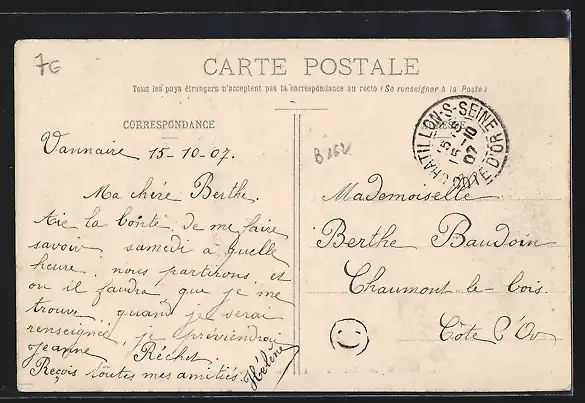 7G
CARTE POSTALE
Tous les pays étrangers n'acceptent pas la correspondance au recto (Se renseigner à la Poste)
CORRESPONDANCE
B162
CHATILLON-S-SEINE
15-10
07
COTE D'OR
Vannaire 15-10-07.
Ma chère Berthe
Aie la bonté de me faire
savoir samedi à quelle
heure, nous partirons et
ou il faudra que je me
trouve, quand je serai
renseignée, je préviendrai
Jeanne Réchet.
Reçois toutes mes amitiés.
Hélène
Mademoiselle
Berthe Baudoin
Chaumont le-bois.
Côte d'Or